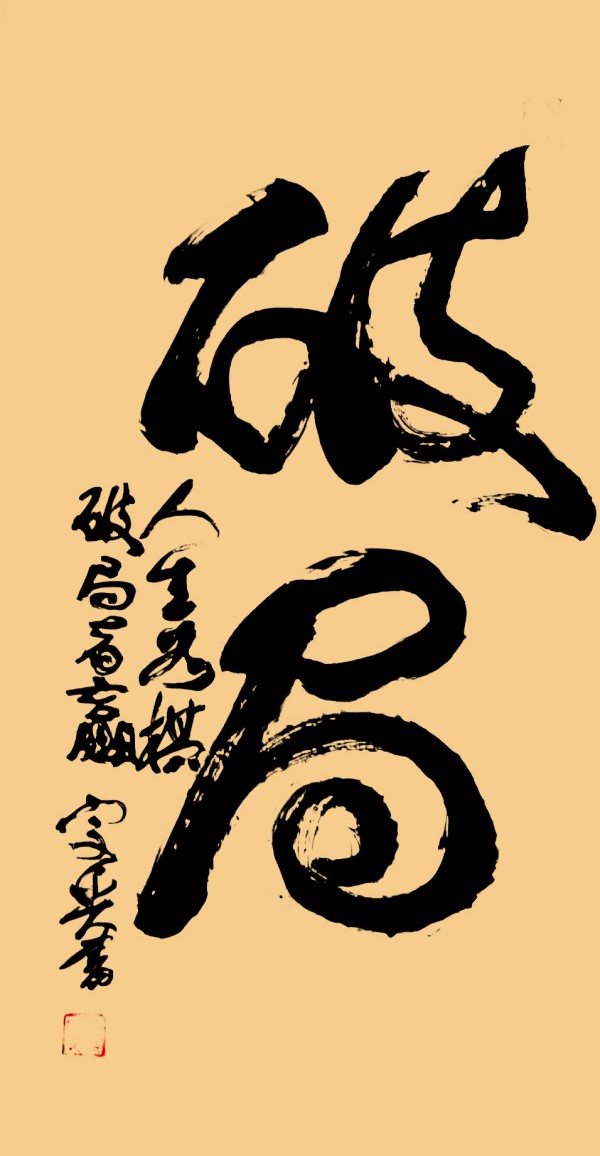 破局
人生为棋
破局者赢
书